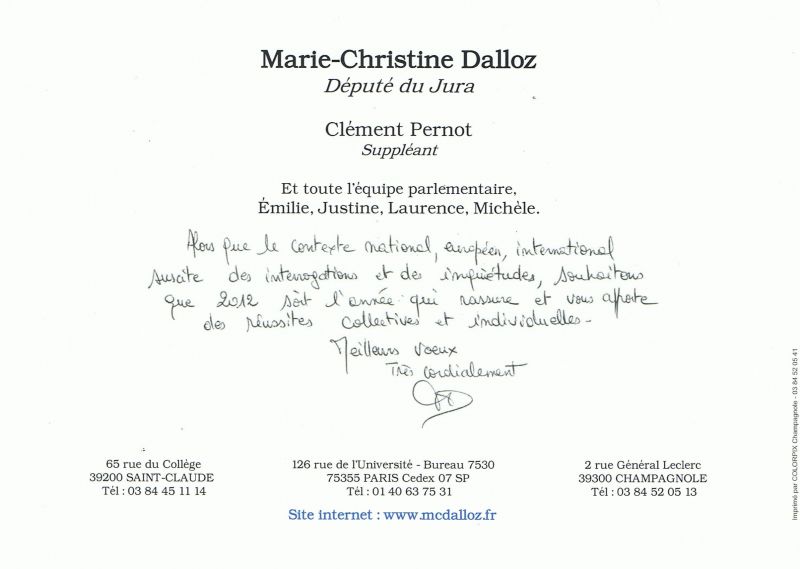 Marie-Christine Dalloz
Député du Jura
Clément Pernot
Suppléant
Et toute l'équipe parlementaire,
Émilie, Justine, Laurence, Michèle.
Alors que le contexte national, européen, international
suscite des interrogations et des inquiétudes, souhaitons
que 2012 soit l'année qui rassure et vous apporte
des réussites collectives et individuelles-
Meilleurs voeux
Très cordialement
65 rue du Collège
39200 SAINT-CLAUDE
Tél : 03 84 45 11 14
126 rue de l'Université - Bureau 7530
75355 PARIS Cedex 07 SP
Tél : 01 40 63 75 31
2 rue Général Leclerc
39300 CHAMPAGNOLE
Tél : 03 84 52 05 13
Site internet : www.mcdalloz.fr
Imprimé par COLORPIX Champagnole - 03 84 52 05 41